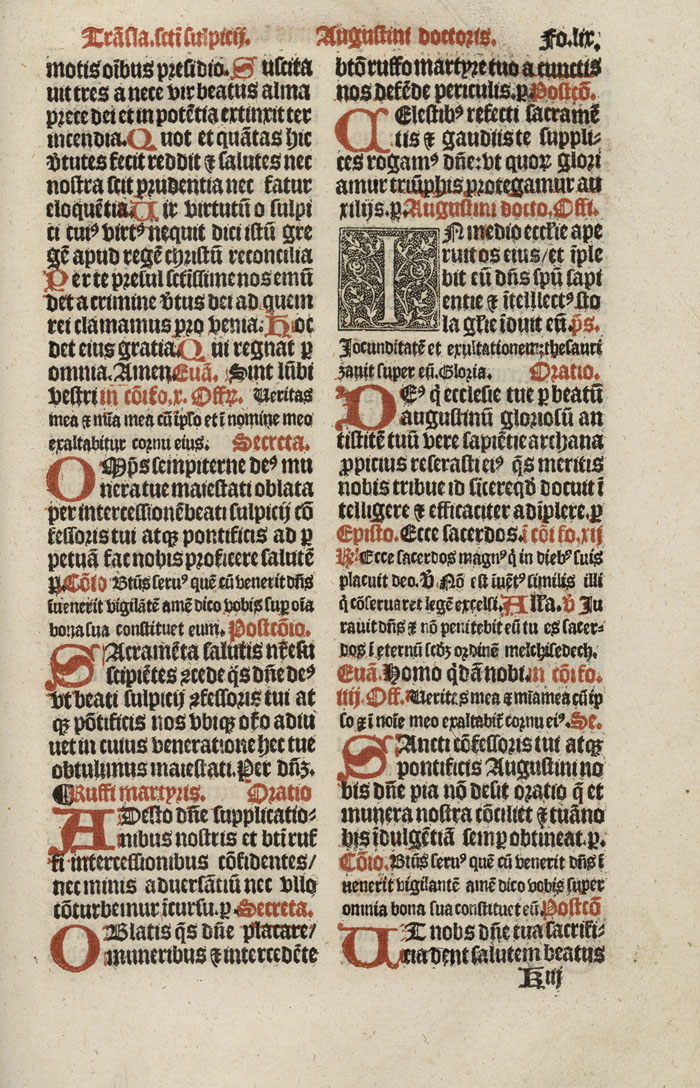 Trãsla.scti sulpicij. Augustini doctoris. Fo.lix.
motis oĩbus presidio. Suscita
uit tres a nece vir beatus alma
prece dei et in potẽtia extinxit ter
incendia. Quot et quãtas hic
v̾tutes fecit reddit ⁊ salutes nec
nostra scit prudentia nec fatur
eloquẽtia. Uir virtutũ o sulpi
ci cuiꝰ virtꝰ nequit dici istũ gre
gẽ apud regẽ christũ reconcilia
Per te presul sctĩssime nos emũ
det a crimine v̾tus dei ad quem
rei clamamus pro venia. Hoc
det eius gratia. Qui regnat ꝑ
omnia. Amen Euã. Sint lũbi
vestri in cõi fo.x. Offꝝ. Ueritas
mea ⁊ mĩa mea cũ ip̃o et ĩ nomine meo
exaltabitur cornu eius. Secreta.
OMp̃s sempiterne deꝰ mu
nera tue maiestati oblata
per intercessionẽ beati sulpicij cõ
fessoris tui atqꝫ pontificis ad ꝑ
petuã fac nobis proficere salutẽ
ꝑ. Cõio Btũs seruꝰ quẽ cũ venerit dñs
ĩuenerit vigilãtẽ amẽ dico vobis suꝑ oĩa
bona sua constituet eum. Postcõio.
SAcramẽta salutis nr̃e su
scipiẽtes ꝯcede q̃s dñe deꝰ
vt beati sulpicij ꝯfessoris tui at
qꝫ põtificis nos vbiqꝫ or̃o adiu
uet in cuius veneratione hec tue
obtulimus maiestati. Per dñꝫ.
¶Ruffi martyris. Oratio
ADesto dñe supplicatio-
nibus nostris et bt̃i ruf
fi intercessionibus cõfidentes/
nec minis aduersãtiũ nec vllo
cõturbemur ĩcursu.ꝑ. Secreta.
OBlatis q̃s dñe placare/
muneribus ⁊ intercedẽte
bt̃o ruffo martyre tuo a cunctis
nos defẽde periculis.ꝑ. Postcõ.
CElestibꝰ refecti sacramẽ
tis ⁊ gaudijs te suppli-
ces rogamꝰ dñe: vt quoꝝ glori
amur triũphis protegamur au
xilijs.ꝑ. Augustini docto. Offi.
IN medio eccl̃ie ape
ruit os eius/et ĩple
bit eũ dñs sp̃u sapi
entie ⁊ ĩtellectꝰ sto
la gl̃ie ĩduit eũ. p̃s.
Jocunditatẽ et exultationem: thesauri
zauit super eũ. Gloria. Oratio.
DEꝰ q̃ ecclesie tue ꝑ beatũ
augustinũ gloriosũ an
tistitẽ tuũ vere sapiẽtie archana
ꝓpicius reserasti eiꝰ q̃s meritis
nobis tribue id sĩcere qd̃ docuit ĩ
telligere ⁊ efficaciter adĩplere.ꝑ
Episto. Ecce sacerdos. ĩ cõi fo.xij
℟. Ecce sacerdos magnꝰ q̃ in diebꝰ suis
placuit deo. ℣ Nõ est ĩuẽtꝰ similis illi
q̃ cõseruaret legẽ excelsi. Alla. ℣ Ju
rauit dñs ⁊ nõ penitebit eũ tu es sacer-
dos ĩ eternũ scd̃ꝫ ordinẽ melchisedech.
Euã. Homo q̃dã nobi. in cõi fo.
iiij. Off. Ueritas mea ⁊ mĩa mea cũ ip
so ⁊ ĩ noĩe meo exaltabit̃ cornu eiꝰ. Se.
SAncti cõfessoris tui atqꝫ
pontificis Augustini no
bis dñe pia nõ desit oratio q̃ et
munera nostra cõciliet ⁊ tuã no
bis ĩdulgẽtiã semꝑ obtineat.ꝑ.
Cõio. Btũs seruꝰ quẽ cũ venerit dñs ĩ
uenerit vigilantẽ amẽ dico vobis super
omnia bona sua constituet eũ. Postcõ
UT nob̃s dñe tua sacrifi-
cia dent salutem beatus
K iij